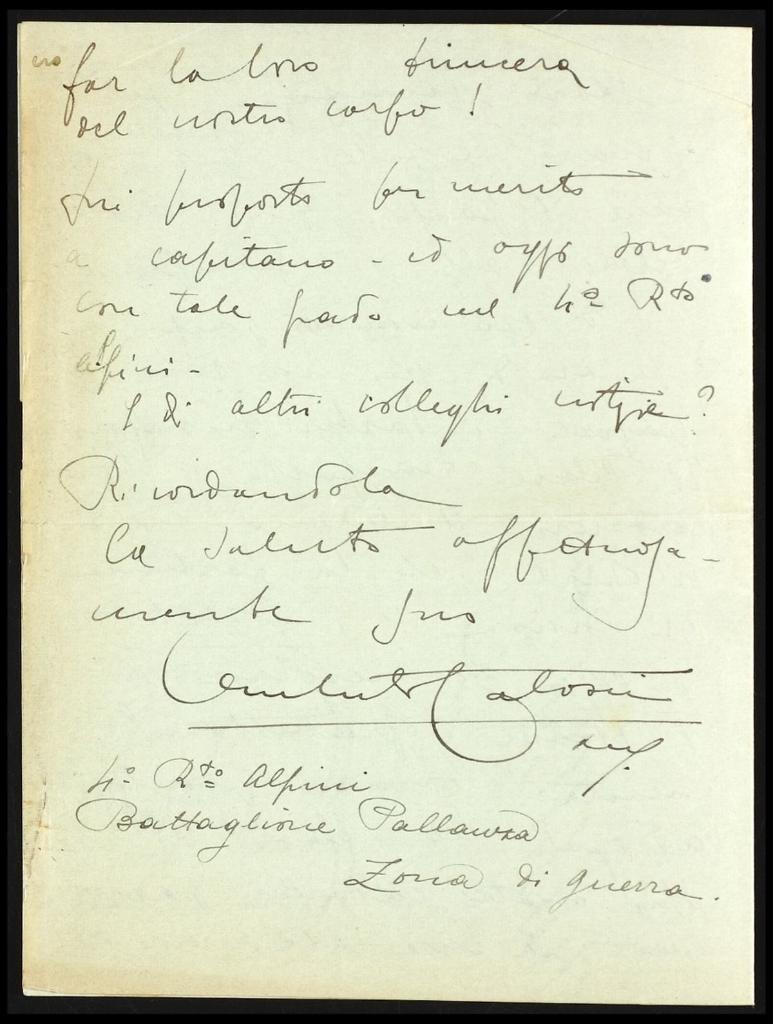 far la loro trincera
del nostro corpo!
Fui proposto per merito
a capitano - ed oggi sono
con tale grado nel 4º Rto
alpini -
E di altri colleghi notizie?
Ricordandola
La saluto affettuosa-
mente suo
Umberto Calosci
4º Rto Alpini
Battaglione Pallanza
Zona di guerra.